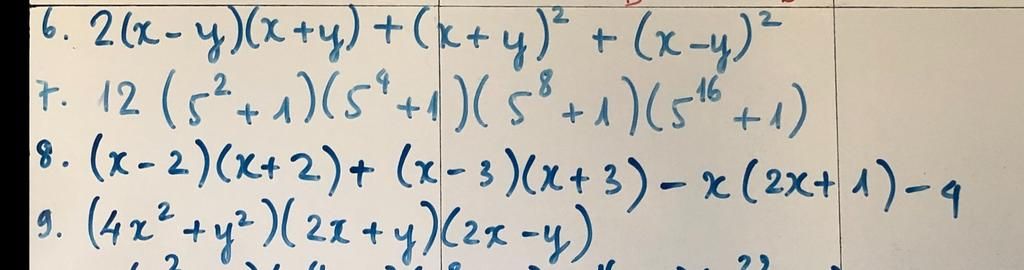 6. 2(x-y)(x+y)+(x+y)² + (x-y)²
7. 12 (5²+1)(5⁴+1)(5⁸+1)(5¹⁶+1)
8. (x-2)(x+2)+ (x-3)(x+3) - x(2x+1)-9
9. (4x²+y²)(2x+y)(2x-y)